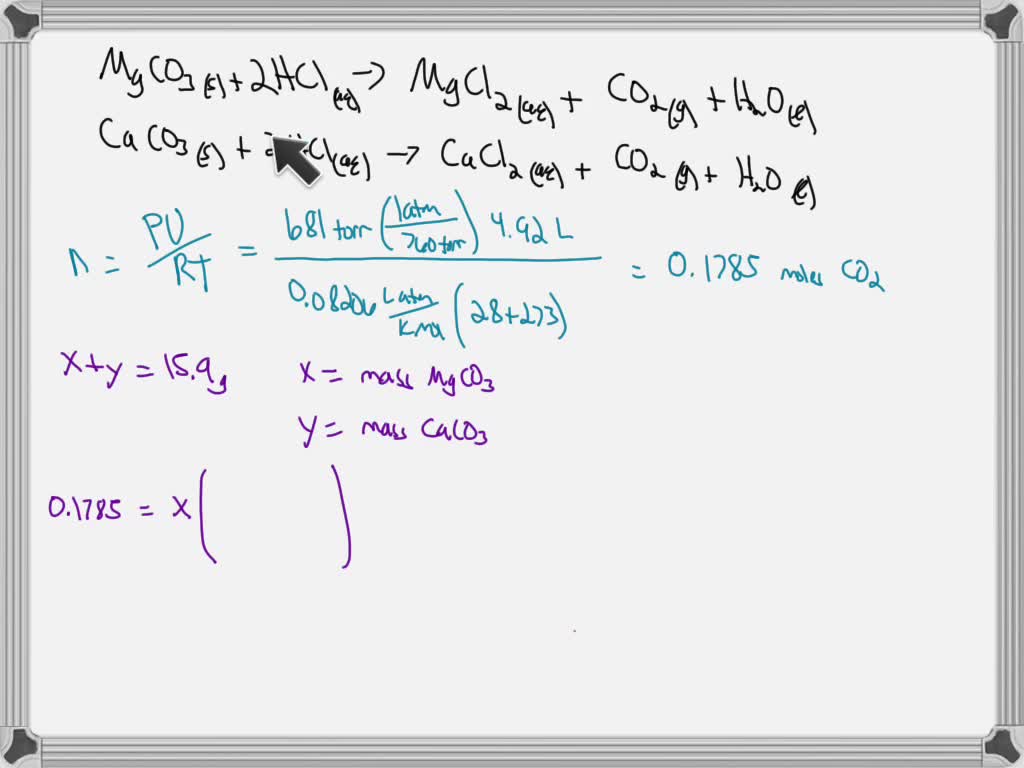 MgCO₃(s) + 2HCl(aq) → MgCl₂(aq) + CO₂(g) + H₂O(l)
CaCO₃(s) + HCl(aq) → CaCl₂(aq) + CO₂(g) + H₂O(l)
n = PV/RT = 681 torr (1 atm/760 torr) 4.92 L / 0.08206 L atm/K mol (28+273) = 0.1785 moles CO₂
x+y = 15.9g x = mass MgCO₃
y = mass CaCO₃
0.1785 = x ( )